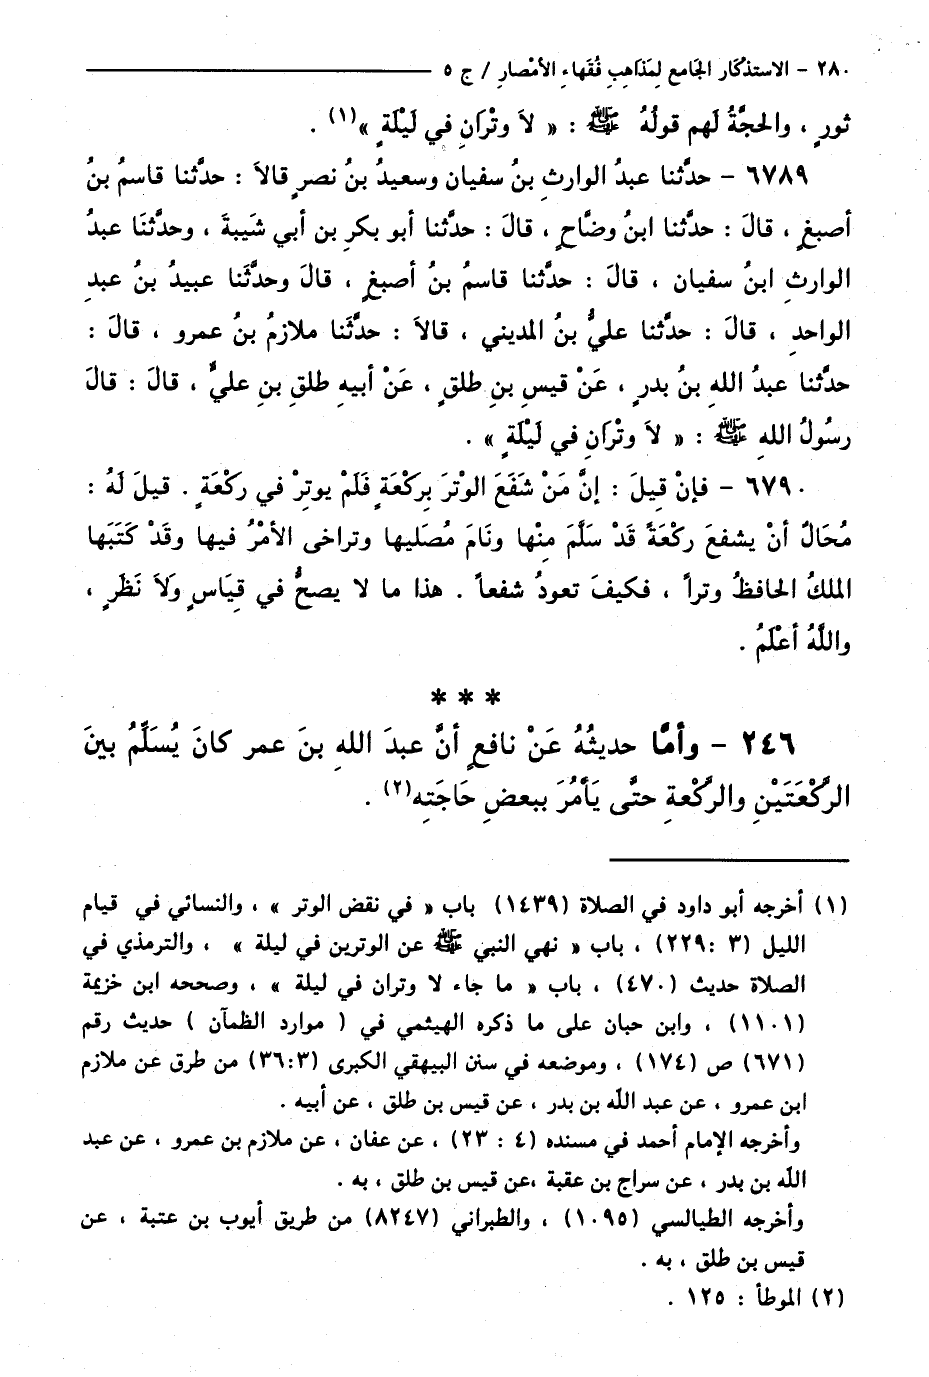 ٢٨٠ - الاستذكار الجامع لِمَذاهبِ فُقَهاءِ الأمْصارِ / ج ٥
ثورٍ ، والحجَّةُ لَهم قولُهُ ﷺ : « لاَ وتْرَانِ في لَيْلَةٍ »(١) .
٦٧٨٩ - حدَّثنا عبدُ الوارثِ بنُ سفيان وسعيدُ بنُ نصرٍ قالاَ : حدَّثنا قاسمُ بنُ
أصبغٍ ، قالَ : حدَّثنا ابنُ وضَّاحٍ ، قالَ : حدَّثنا أبو بكرِ بن أبي شَيبةَ ، وحدَّثنَا عبدُ
الوارثِ ابنُ سفيان ، قالَ : حدَّثنا قاسمُ بنُ أصبغٍ ، قالَ وحدَّثَنا عبيدُ بنُ عبدِ
الواحدِ ، قالَ : حدَّثنا عليُّ بنُ المديني ، قالاَ : حدَّثَنا ملازمُ بنُ عمرو ، قالَ :
حدَّثنا عبدُ اللهِ بنُ بدرٍ ، عَنْ قيسِ بنِ طلقٍ ، عَنْ أبيهِ طلقِ بنِ عليٍّ ، قالَ : قالَ
رسُولُ اللهِ ﷺ : « لاَ وتْرَانِ في لَيْلَةٍ » .
٦٧٩٠ - فإنْ قيلَ : إنَّ مَنْ شَفَعَ الوتْرَ بِركْعَةٍ فَلَمْ يوترْ في ركْعَةٍ . قيلَ لَهُ :
مُحَالٌ أنْ يشفعَ ركْعَةً قَدْ سَلَّمَ مِنْها ونَامَ مُصَليها وتراخى الأمْرُ فيها وقَدْ كَتَبَها
الملكُ الحافظُ وتراً ، فكيفَ تعودُ شفعاً . هذا ما لا يصحُّ في قِيَاسٍ ولاَ نَظَرٍ ،
واللَّهُ أعْلَمُ .
* * *
٢٤٦ - وأمَّا حديثُهُ عَنْ نافعٍ أنَّ عبدَ اللهِ بنَ عمر كانَ يُسَلِّمُ بينَ
الرَّكْعَتَيْنِ والرَّكْعةِ حتَّى يَأمُرَ ببعضِ حَاجَتِه(٢) .
(١) أخرجه أبو داود في الصلاة (١٤٣٩) باب « في نقض الوتر » ، والنسائي في قيام
الليل (٣ :٢٢٩) ، باب « نهي النبي ﷺ عن الوترين في ليلة » ، والترمذي في
الصلاة حديث (٤٧٠) ، باب « ما جاء لا وتران في ليلة » ، وصححه ابن خزيمة
(١١٠١) ، وابن حبان على ما ذكره الهيثمي في ( موارد الظمآن ) حديث رقم
(٦٧١) ص (١٧٤) ، وموضعه في سنن البيهقي الكبرى (٣:‏٣٦) من طرق عن ملازم
ابن عمرو ، عن عبد الله بن بدر ، عن قيس بن طلق ، عن أبيه .
وأخرجه الإمام أحمد في مسنده (٤ : ٢٣) ، عن عفان ، عن ملازم بن عمرو ، عن عبد
الله بن بدر ، عن سراج بن عقبة ،عن قيس بن طلق ، به .
وأخرجه الطيالسي (١٠٩٥) ، والطبراني (٨٢٤٧) من طريق أيوب بن عتبة ، عن
قيس بن طلق ، به .
(٢) الموطأ : ١٢٥ .